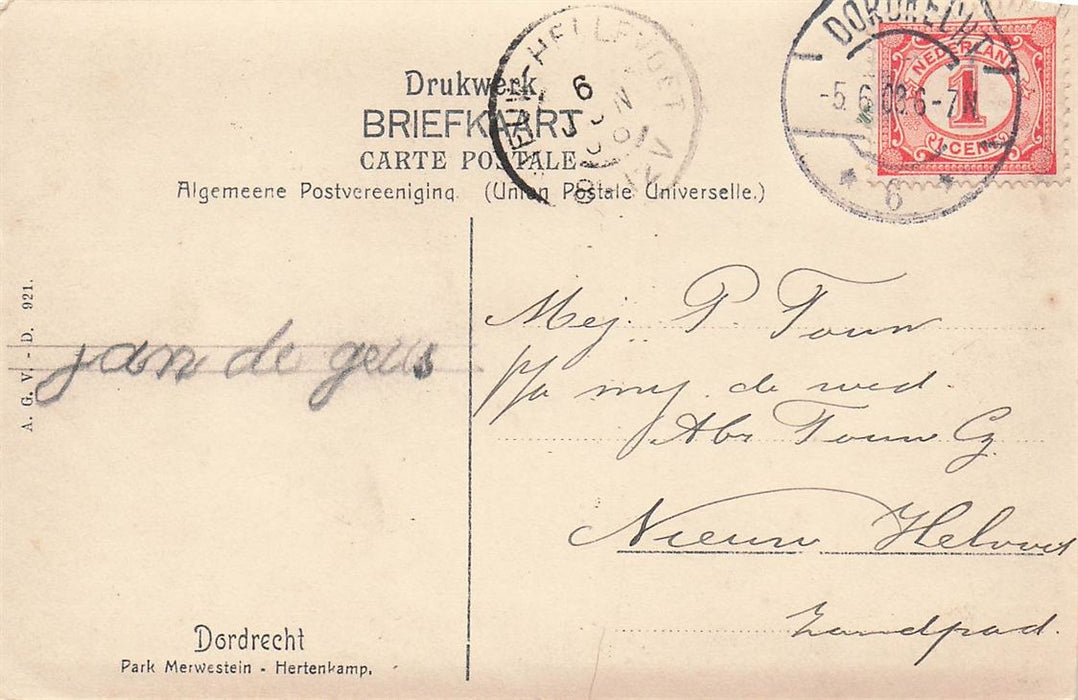 Drukwerk
BRIEFKAART
CARTE POSTALE
Algemeene Postvereeniging. (Union Postale Universelle.)
DORDRECHT
-5.6.08.6-7N
6
NEDERLAND
1
1 CENT
6 JUN 08
A. G. V. - D. 921.
jan de geus
Mej. P Touw
p/a mej de wed
Abr Touw Cz
Nieuw Helvoet
Zandpad.
Dordrecht
Park Merwestein - Hertenkamp.